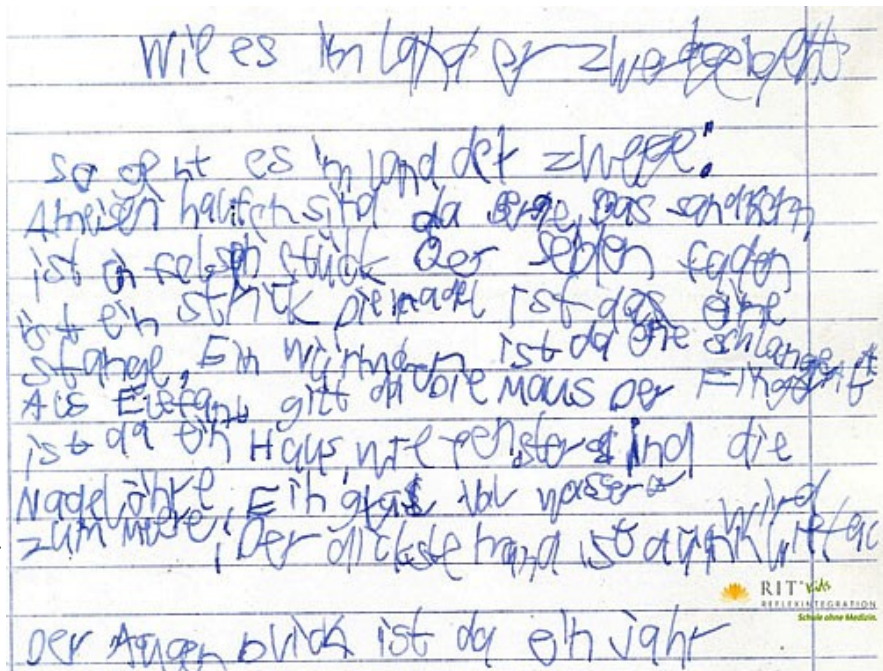 Wie es im land er zwerge geht
so geht es im land der zwerge:
Ameisen haufen sind da berge, das sandkorn
ist ein felsen stück Der seiden faden
ist ein strick Die nadel ist das eine
stange. Ein würmchen ist da eine schlange
Als Elefant gilt da die Maus Der Fingerhut
ist da ein Haus, die fenster sind die
Nadelöhre, Ein glas voll wasser wird
zum Meere, Der dickste mann ist
Der Augenblick ist da ein jahr
RIT® kids
REFLEXINTEGRATION
Schule ohne Medizin.